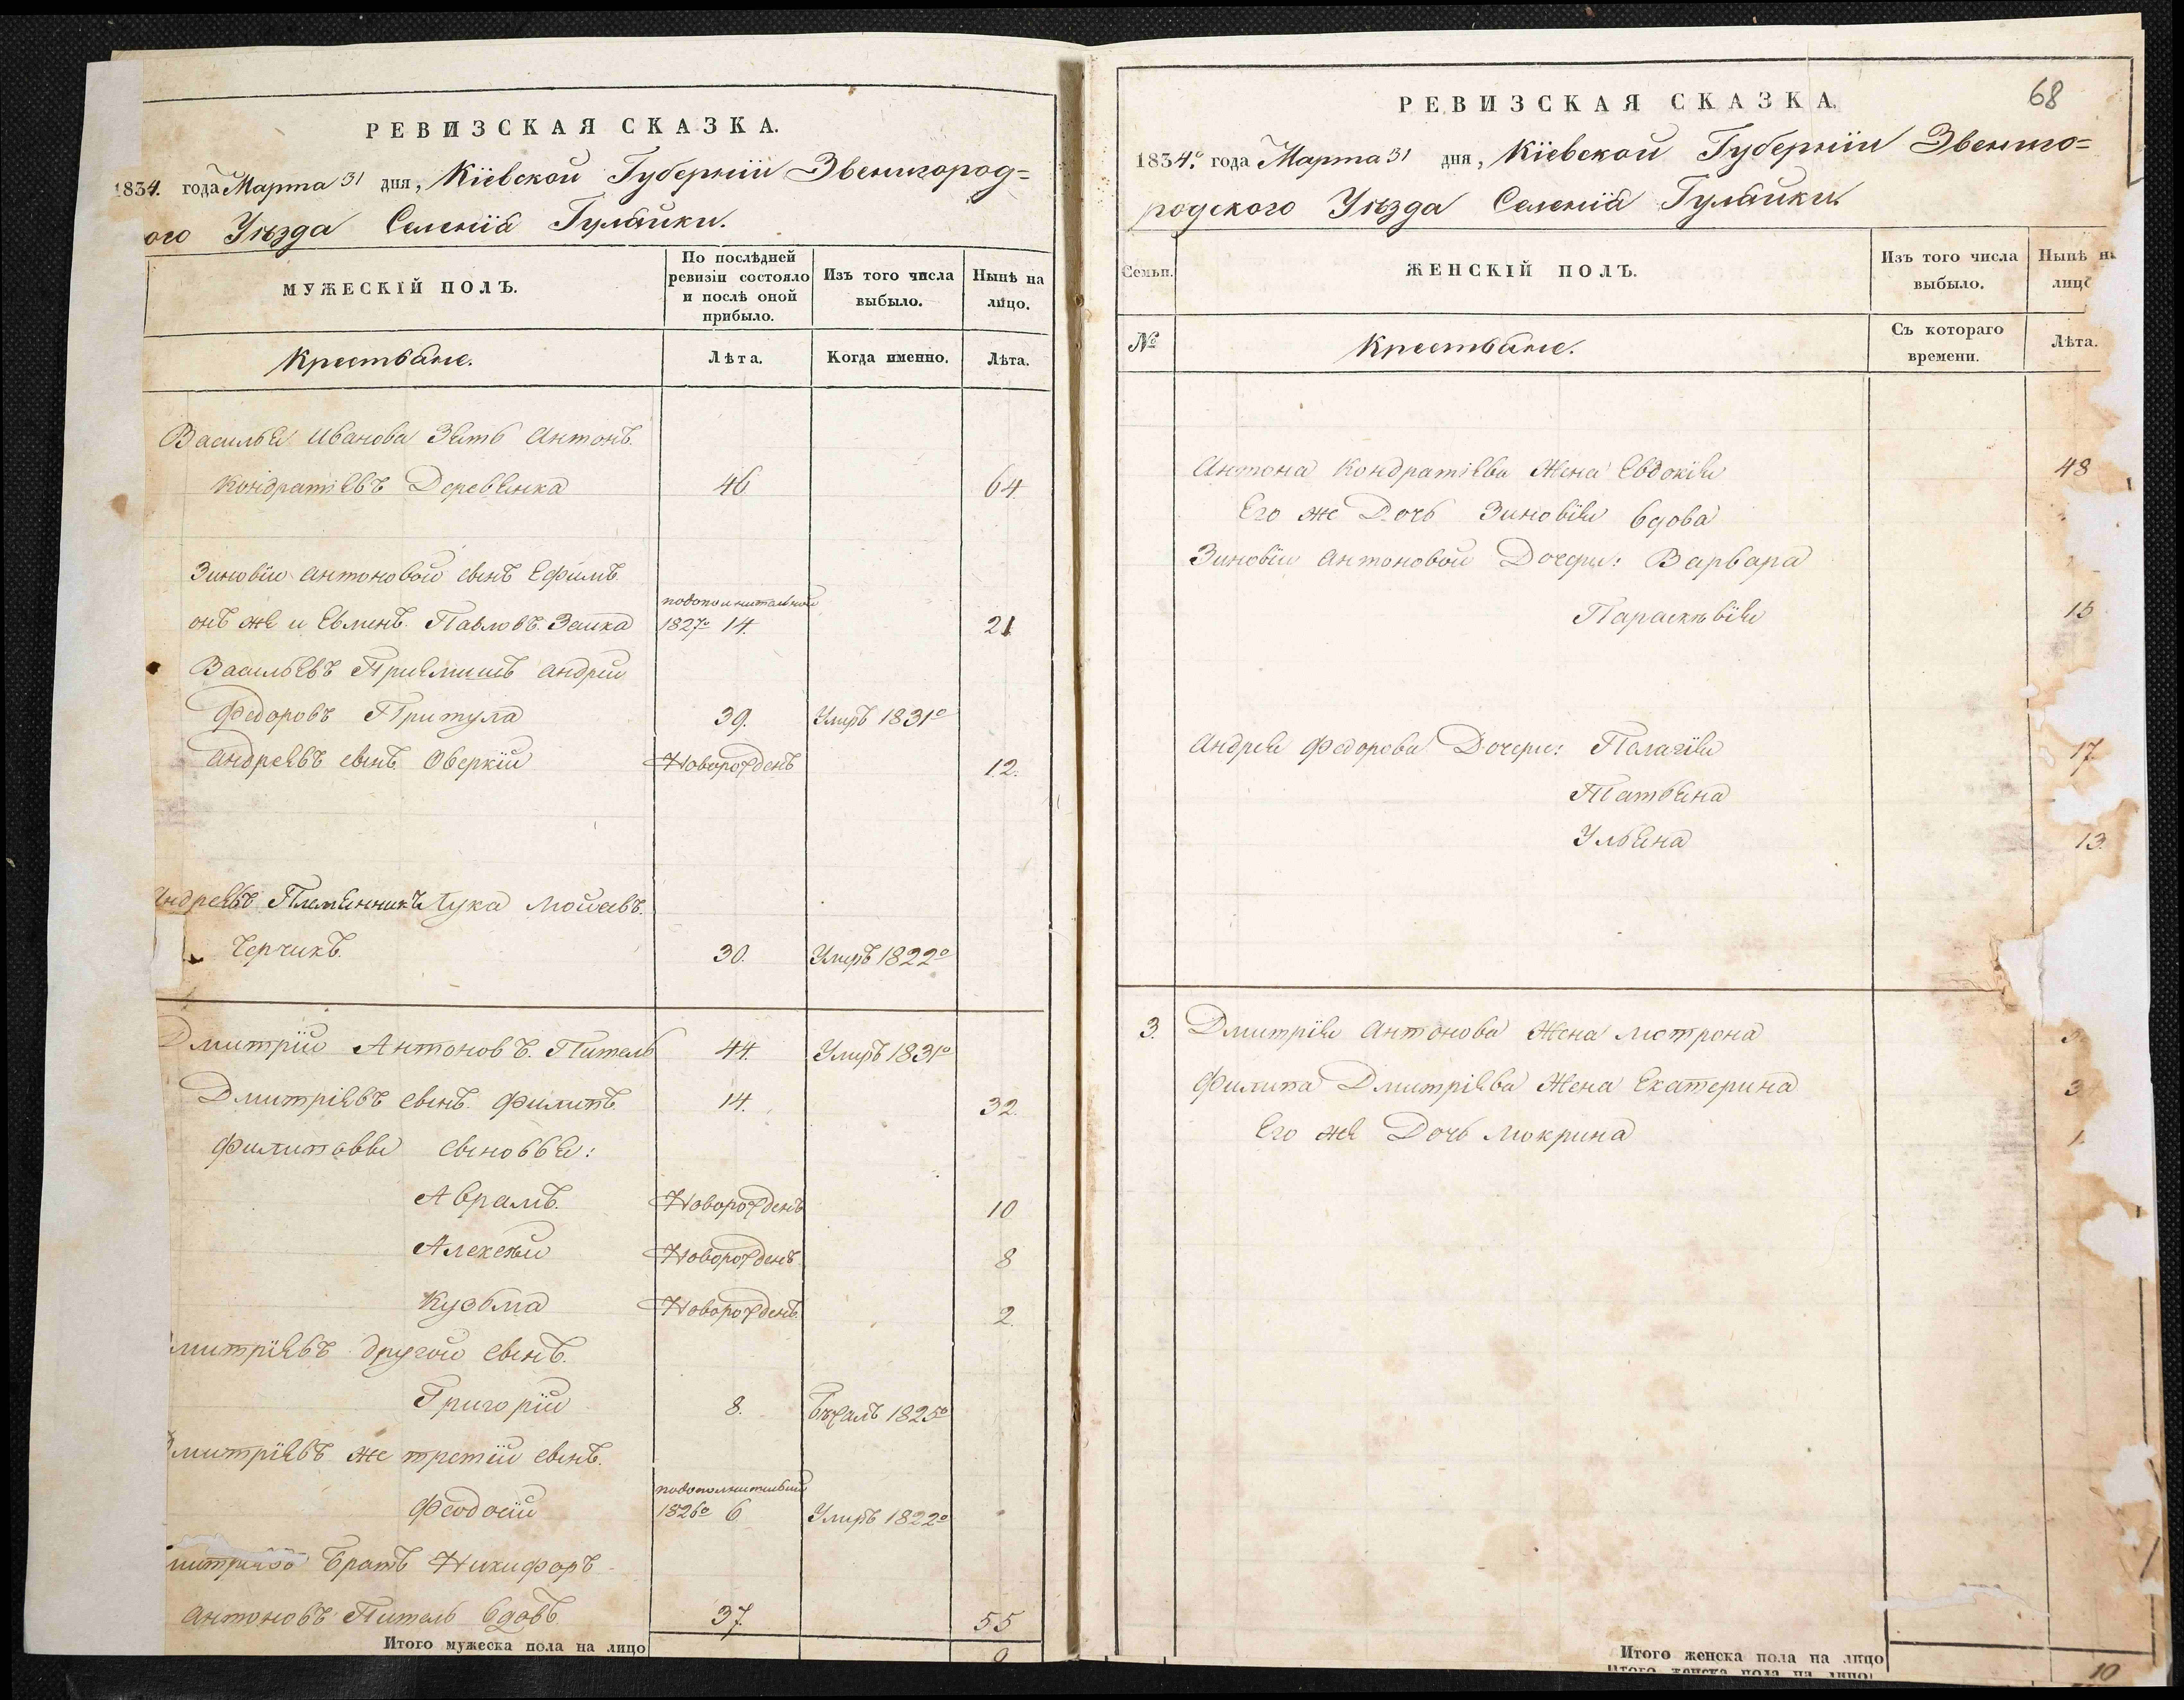 РЕВИЗСКАЯ СКАЗКА.
1834. года Марта 31 дня, Кіевской Губерніи Звенигород=
ого Уѣзда Селенія Гулайки.
МУЖЕСКІЙ ПОЛЪ.
По послѣдней ревизіи состояло и послѣ оной прибыло.
Изъ того числа выбыло.
Нынѣ на лицо.
Крестьяне.
Лѣта.
Когда именно.
Лѣта.
Василья Иванова Зять Антонъ
Кондратіевъ Деревянка 46 64
Зиновіи Антоновой сынъ Ефимъ
подополнительной
онъ же и Евменъ Павловъ Заика 1827го 14. 21
Васильевъ Приемышъ Андрей
Федоровъ Притула 39. Умръ 1831о
Андреевъ сынъ Оверкій Новорожденъ 12.
Андреевъ Племянникъ Лука Мойсевъ
Черчикъ 30. Умръ 1822о
Дмитрій Антоновъ Питель 44. Умръ 1831о
Дмитріевъ сынъ Филипъ 14. 32.
Филиповы сыновья:
Аврамъ Новорожденъ 10
Алексѣй Новорожденъ 8
Кузьма Новорожденъ 2.
митріевъ другой сынъ
Григорій 8. Бѣжалъ 1825о
Дмитріевъ же третій сынъ
подополнительной
Феодосій 1826о 6 Умръ 1822о
митріевъ Братъ Никифоръ
Антоновъ Питель вдовъ 37. 55
Итого мужеска пола на лицо 9
68
РЕВИЗСКАЯ СКАЗКА.
1834.о года Марта 31 дня, Кіевской Губерніи Звениго=
родского Уѣзда Селенія Гулайки
Семьи.
ЖЕНСКІЙ ПОЛЪ.
Изъ того числа выбыло.
Нынѣ на лицо
№
Крестьяне.
Съ котораго времени.
Лѣта.
Антона Кондратіева Жена Евдокія 48
Его же Дочь Зиновія вдова
Зиновіи Антоновой Дочери: Варвара
Параскѣвія 15
Андрея Федорова Дочери: Пелагія 17
Татьяна
Ульяна 13.
3. Дмитрія Антонова Жена Мотрона
Филипа Дмитріева Жена Екатерина 3
Его же Дочь Мокрина 1
Итого женска пола на лицо
Итого женска пола на лицо 10